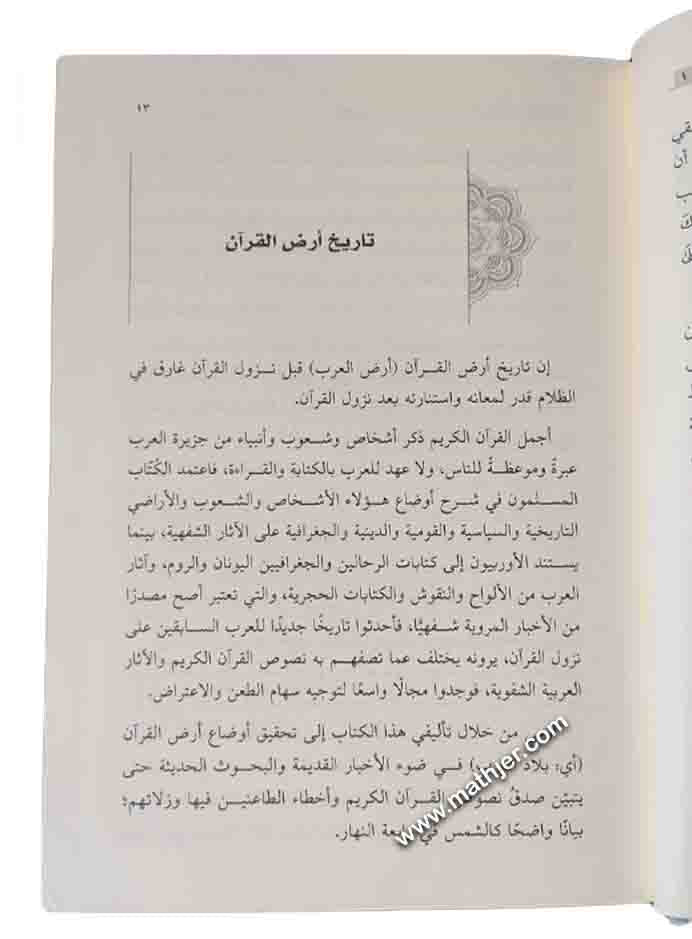 ١٣
تاريخ أرض القرآن
إن تاريخ أرض القرآن (أرض العرب) قبل نزول القرآن غارق في
الظلام قدر لمعانه واستنارته بعد نزول القرآن.
أجمل القرآن الكريم ذكر أشخاص وشعوب وأنبياء من جزيرة العرب
عبرةً وموعظةً للناس، ولا عهد للعرب بالكتابة والقراءة، فاعتمد الكُتّاب
المسلمون في شرح أوضاع هؤلاء الأشخاص والشعوب والأراضي
التاريخية والسياسية والقومية والدينية والجغرافية على الآثار الشفهية، بينما
يستند الأوربيون إلى كتابات الرحالين والجغرافيين اليونان والروم، وآثار
العرب من الألواح والنقوش والكتابات الحجرية، والتي تعتبر أصح مصدرًا
من الأخبار المروية شفهيًّا، فأحدثوا تاريخًا جديدًا للعرب السابقين على
نزول القرآن، يرونه يختلف عما تصفهم به نصوص القرآن الكريم والآثار
العربية الشفوية، فوجدوا مجالًا واسعًا لتوجيه سهام الطعن والاعتراض.
من خلال تأليفي هذا الكتاب إلى تحقيق أوضاع أرض القرآن
(أي: بلاد في ضوء الأخبار القديمة والبحوث الحديثة حتى
يتبيّن صدقُ القرآن الكريم وأخطاء الطاعنين فيها وزلاتهم؛
بيانًا واضحًا كالشمس في النهار.
www.mathjer.com
١